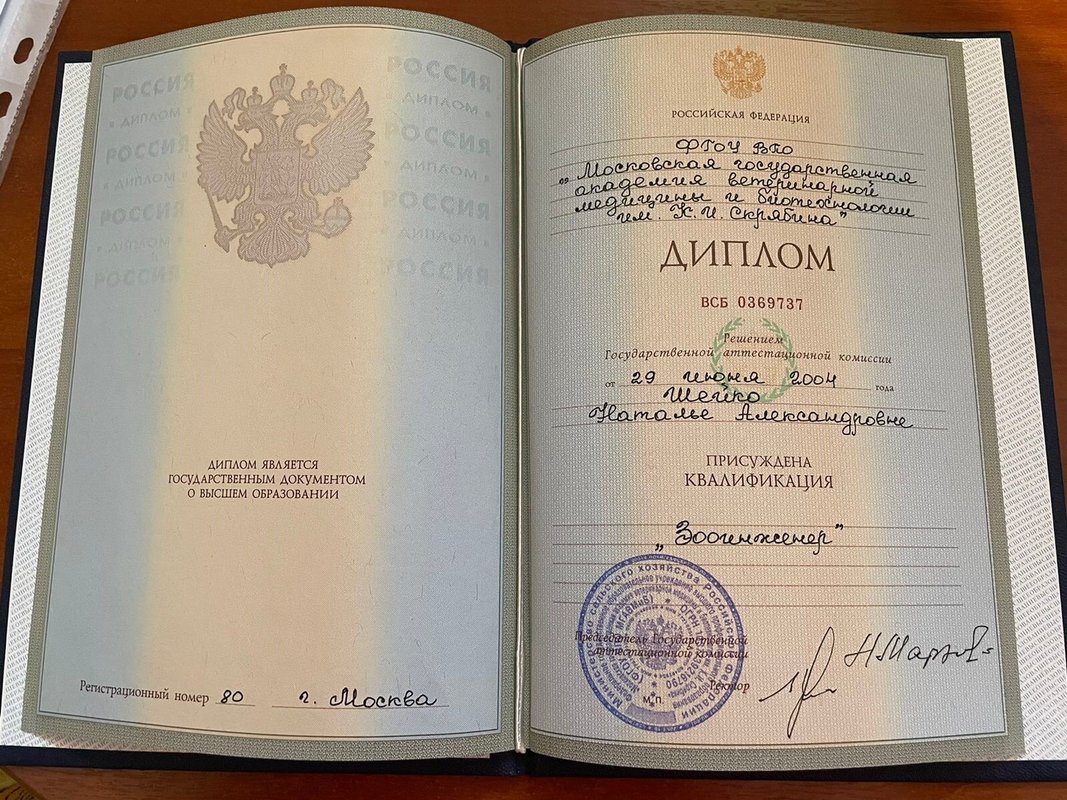 РОССИЯ РОССИЯ
ДИПЛОМ ДИПЛОМ
РОССИЯ РОССИЯ
ДИПЛОМ ДИПЛОМ
РОССИЯ РОССИЯ
ДИПЛОМ ДИПЛОМ
РОССИЯ РОССИЯ
ДИПЛОМ ЯВЛЯЕТСЯ
ГОСУДАРСТВЕННЫМ ДОКУМЕНТОМ
О ВЫСШЕМ ОБРАЗОВАНИИ
Регистрационный номер 80 г. Москва
РОССИЙСКАЯ ФЕДЕРАЦИЯ
ФГОУ ВПО
„Московская государственная
академия ветеринарной
медицины и биотехнологии
им. К.И. Скрябина"
ДИПЛОМ
ВСБ 0369737
Решением
Государственной аттестационной комиссии
от 29 июня 2004 года
Шейко
Наталье Александровне
ПРИСУЖДЕНА
КВАЛИФИКАЦИЯ
„Зооинженер"
Министерство сельского хозяйства Российской Федерации
Председатель Государственной
аттестационной комиссии
Ректор
М.П.